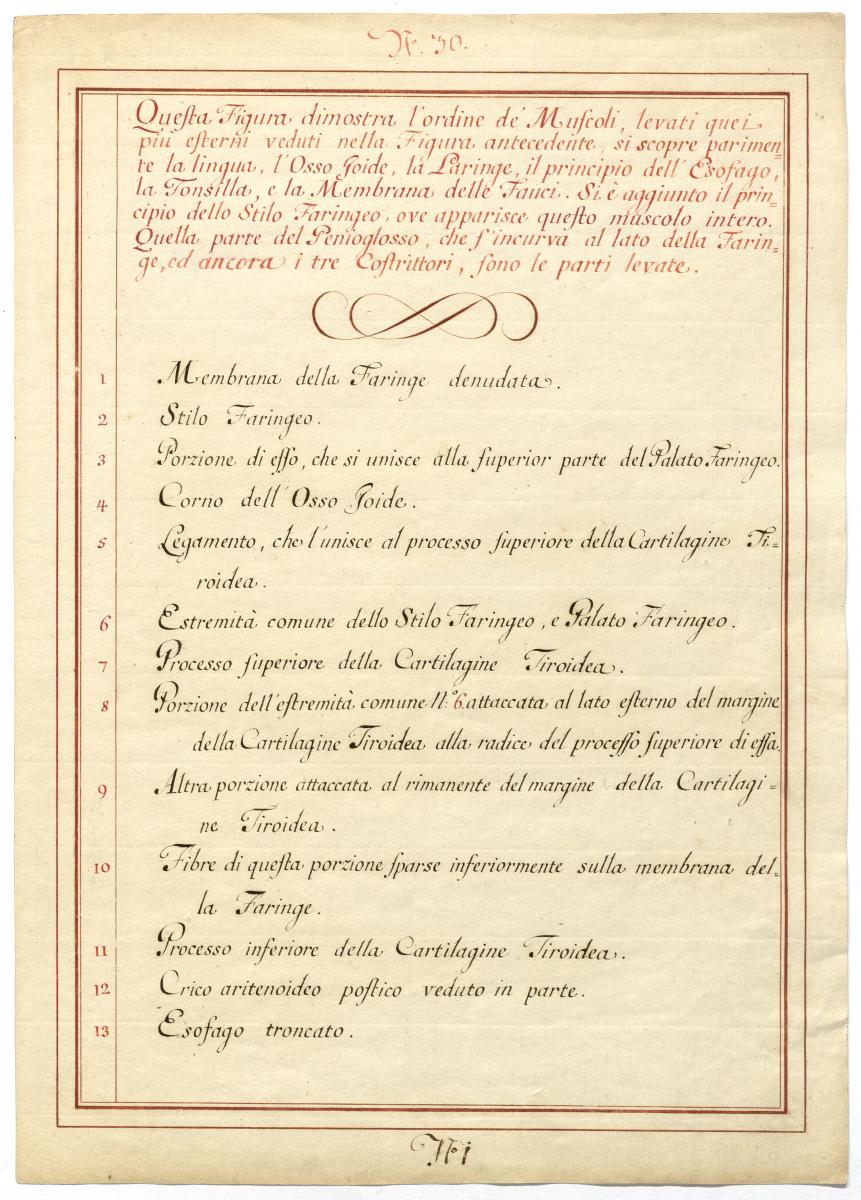 N.º 30.
Questa Figura dimostra l'ordine de' Muscoli, levati quei
più esterni veduti nella Figura antecedente, si scopre parimen=
te la lingua, l'Osso Joide, la Laringe, il principio dell'Esofago,
la Tonsilla, e la Membrana delle Fauci. Si è aggiunto il prin=
cipio dello Stilo Faringeo, ove apparisce questo muscolo intero.
Quella parte del Genioglosso, che s'incurva al lato della Farin=
ge, ed ancora i tre Costrittori, sono le parti levate.
1 Membrana della Faringe denudata.
2 Stilo Faringeo.
3 Porzione di esso, che si unisce alla superior parte del Palato Faringeo.
4 Corno dell'Osso Joide.
5 Legamento, che l'unisce al processo superiore della Cartilagine Ti=
roidea.
6 Estremità comune dello Stilo Faringeo, e Palato Faringeo.
7 Processo superiore della Cartilagine Tiroidea.
8 Porzione dell'estremità comune N.º 6. attaccata al lato esterno del margine
della Cartilagine Tiroidea alla radice del processo superiore di essa.
9 Altra porzione attaccata al rimanente del margine della Cartilagi=
ne Tiroidea.
10 Fibre di questa porzione sparse inferiormente sulla membrana del=
la Faringe.
11 Processo inferiore della Cartilagine Tiroidea.
12 Crico aritenoideo postico veduto in parte.
13 Esofago troncato.
N.º 1